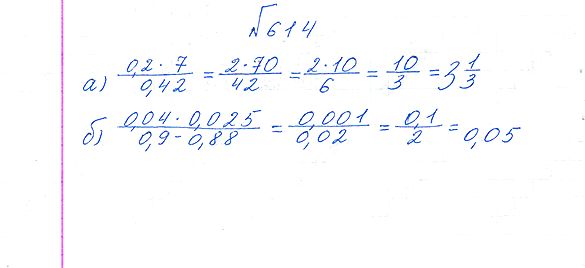 №614
а) \frac{0,2 · 7}{0,42} = \frac{2 · 70}{42} = \frac{2 · 10}{6} = \frac{10}{3} = 3\frac{1}{3}
б) \frac{0,04 · 0,025}{0,9 - 0,88} = \frac{0,001}{0,02} = \frac{0,1}{2} = 0,05